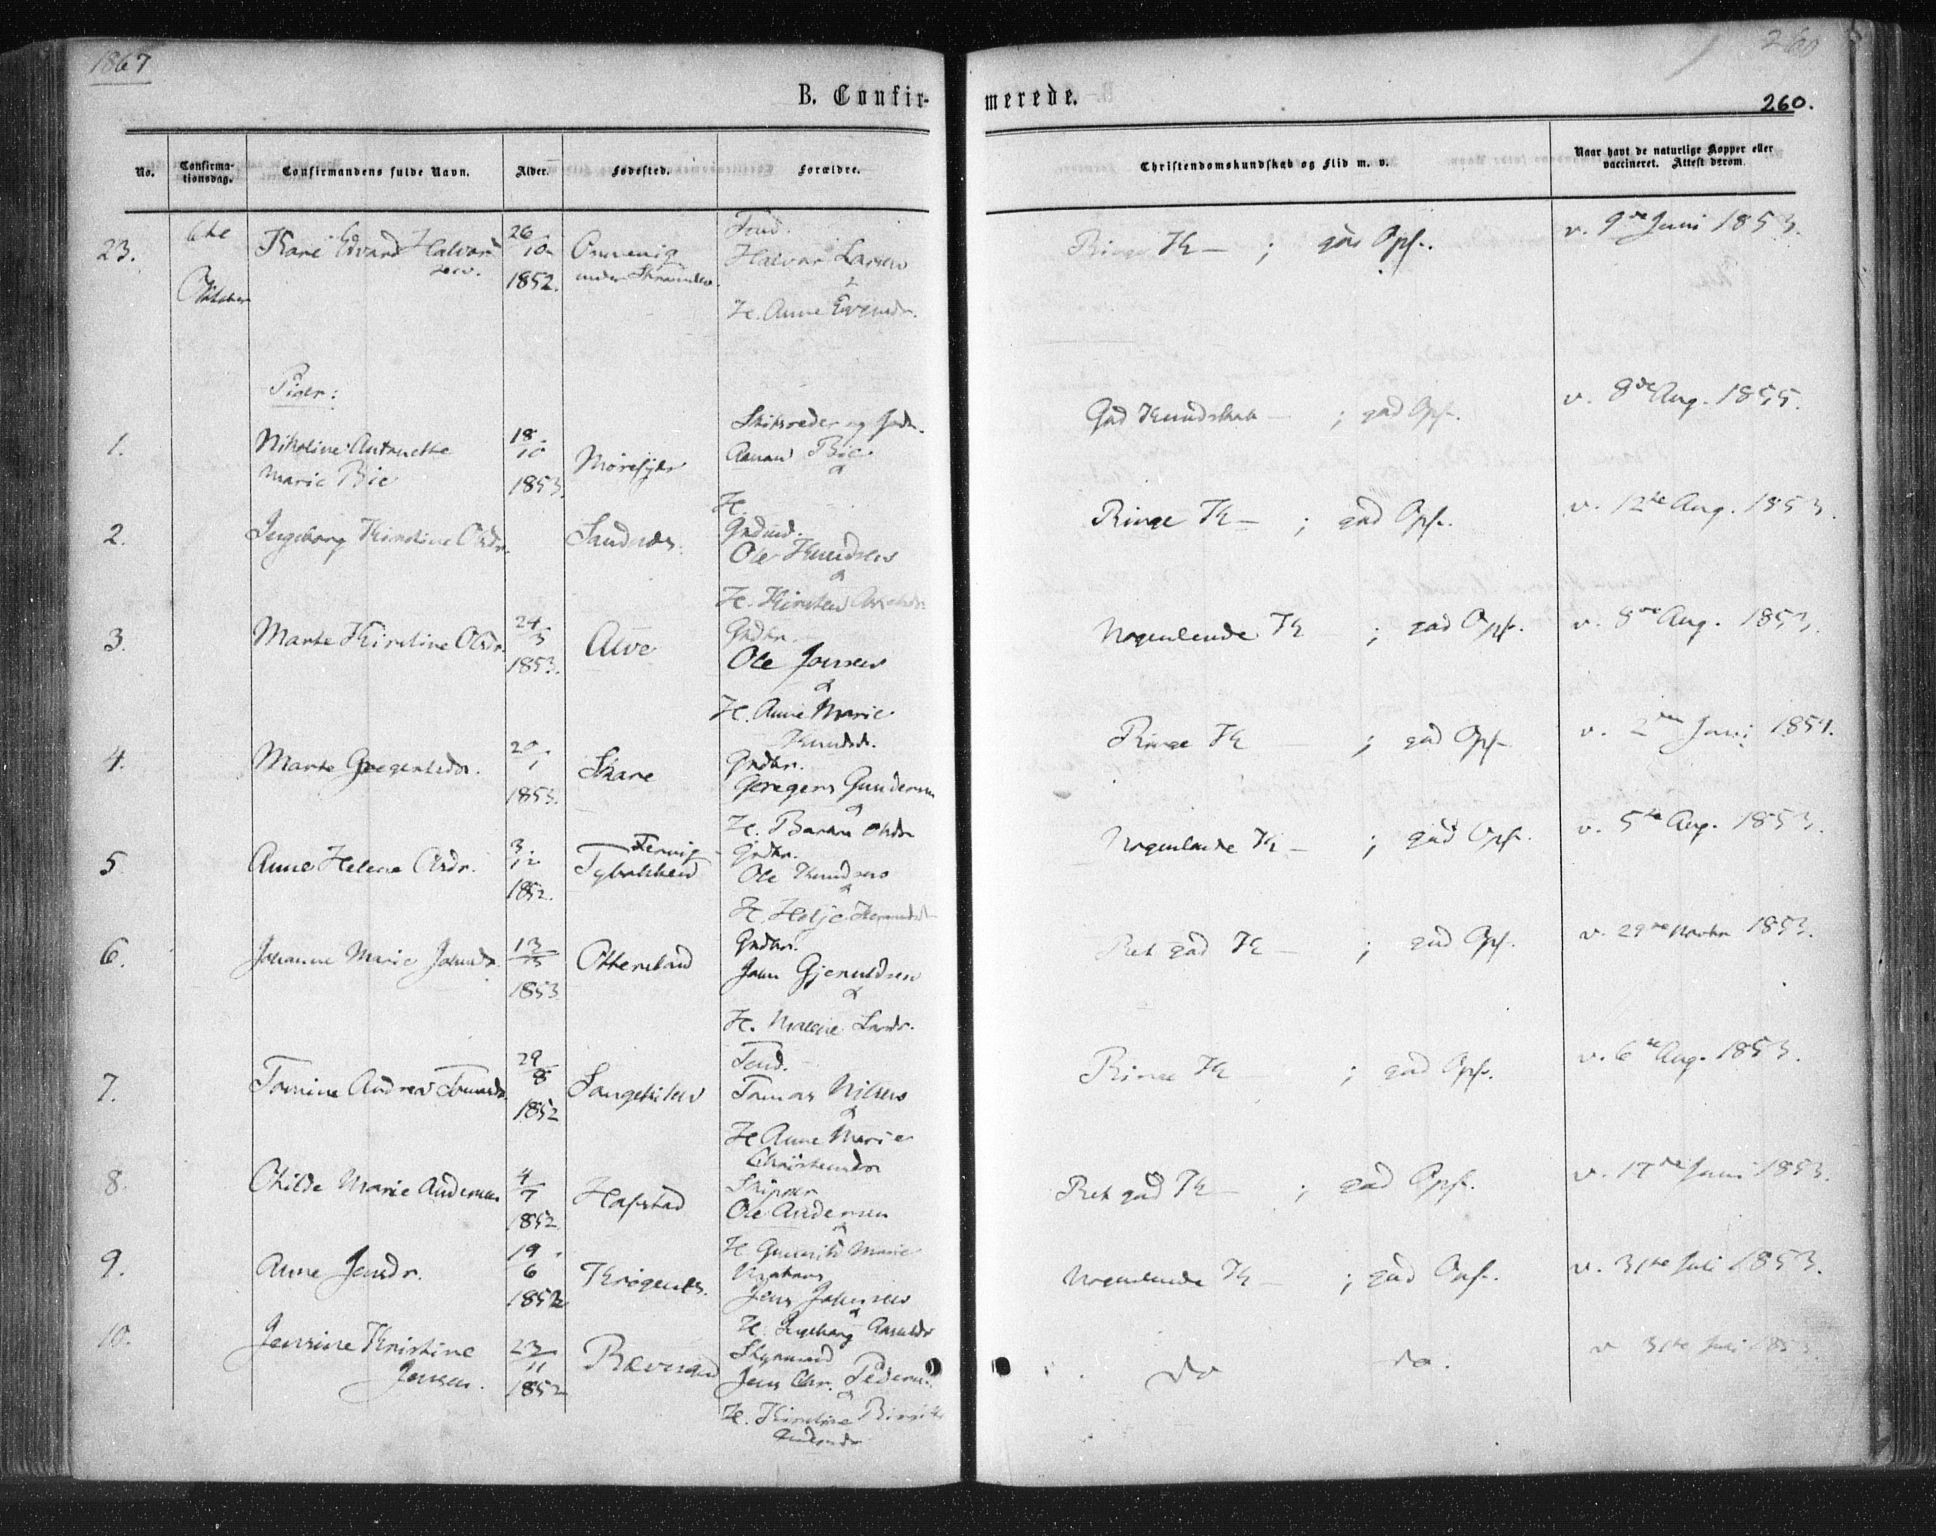 1867
260
B. Confirmerede.
260.
No.
Confirmationsdag.
Confirmandens fulde Navn.
Alder.
Fødested.
Forældre.
Christendomskundskab og Flid m. v.
Naar havt de naturlige Kopper eller vaccineret. Attest derom.
23.
6te
October
Edvard Halvorsen.
26/10 1852.
under
Halvor Larsen
&
H. Anne Evensdr.
Ringe K — ; god Opf.
v. 9de Juni 1853.
Piger:
1.
Nikoline Antonette
Marie Bie
18/10 1853.
Morefjer
og
Bie
&
H.
God Kundskab — ; god Opf.
v. 8de Aug. 1855.
2.
Ingeborg Kirstine Olsdr.
Sandnæs.
Ole Knudsen
&
H. Kirsten
Ringe K — ; god Opf.
v. 12te Aug. 1853.
3.
Marte Kirstine Olsdr.
24/5 1853.
Alve
Grdbr.
Ole Jonsen
&
H. Anne Marie
Knudsd.
Nogenlunde K ; god Opf.
v. 8de Aug. 1853.
4.
Marte Gregersdr.
20/1 1853.
Skare
Grdbr.
Gregers Gundersen
&
H. Olsdr
Ringe K — ; god Opf.
v. 2den Juni 1854.
5
Anne Helene Olsdr.
3/12 1852.
Tybakheid
Grdbr.
Ole Knudsen
&
H. Helje
Nogenlunde K — ; god Opf.
v. 5te Aug. 1853.
6.
Johanne Marie Johnsdr.
13/5 1853
Ottersland
Grdbr.
John Gjeruldsen
&
H. Malene Larsdr.
Ret god K — ; god Opf.
v. 29de Novbr 1853.
7.
Tomine Andrea Tomasdr.
29/8 1852
Songekilen
Tomas Nilsen
&
H. Anne Marie
Christensdr
Ringe K — ; god Opf.
v. 6te Aug. 1853.
8.
Othilde Marie Andersen
4/7 1852.
Hafstad
Skipper
Ole Andersen
&
H. Marie
Ret god K — ; god Opf.
v. 17de Juni 1853.
9.
Anne Jensdr.
19/6 1852
Krøgenes.
Jens Johnsen
&
H. Ingeborg
Nogenlunde K — ; god Opf.
v. 31te Juli 1853.
10.
Jensine Kristine
Jensen.
23/11 1852
Styrmand
Jens Chr. Pedersen
&
H. Kirstine
Andersdr
do
do.
v. 31te Juli 1853.